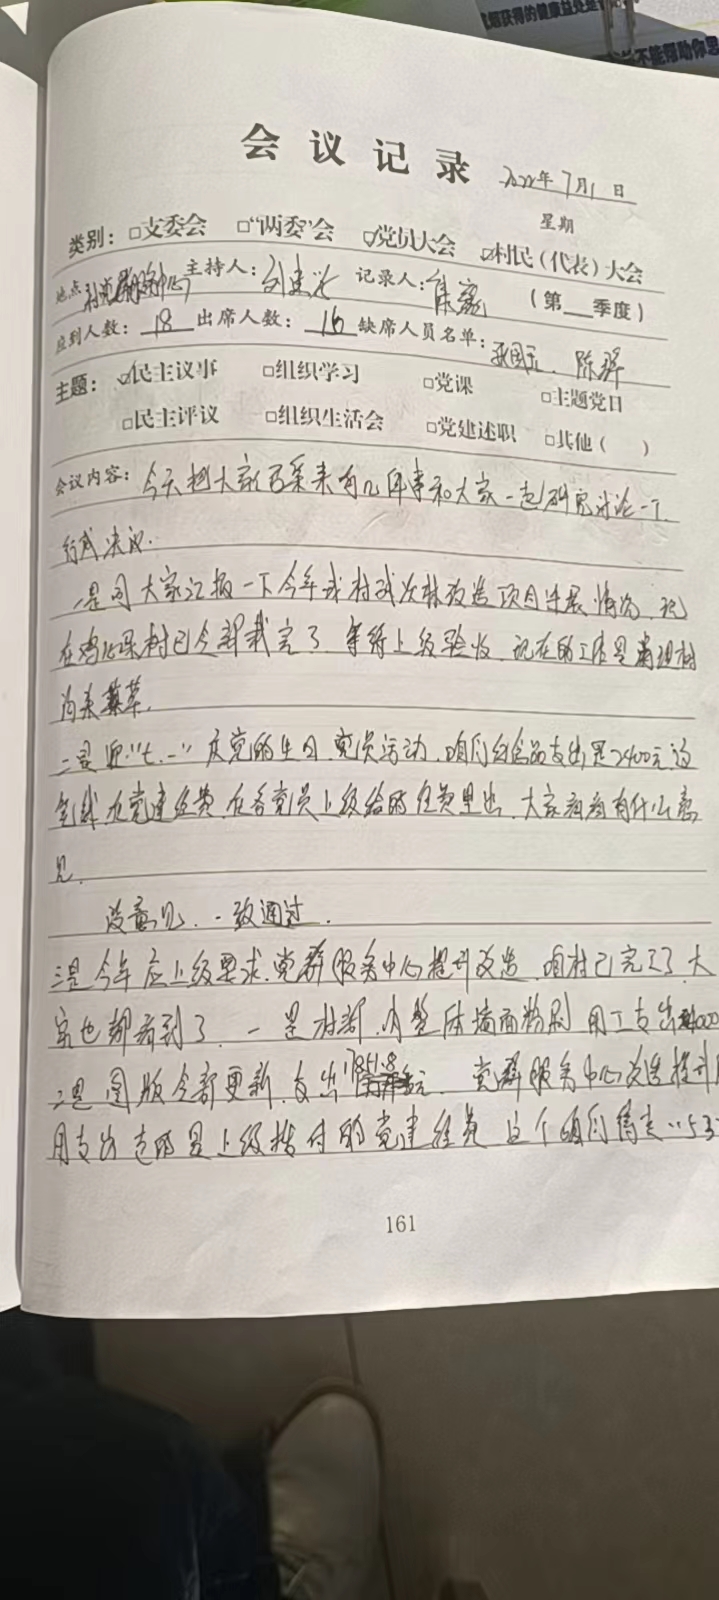 培获得的健康益处是
不能帮助你思
会议记录 2022年7月1日
星期
类别：□支委会 □“两委”会 ☑党员大会 ☑村民（代表）大会
地点 主持人： 记录人： （第__季度）
应到人数：18 出席人数：16 缺席人员名单： 陈
主题：☑民主议事 □组织学习 □党课 □主题党日
□民主评议 □组织生活会 □党建述职 □其他（ ）
会议内容：今天把大家召集来有几件事和大家一起研究讨论一下.
形成决议.
一是向大家汇报一下今年我村残次林改造项目进展情况，现
在 树已全部栽完了 等待上级验收，现在的工作是清理树
沟杂草.
二是迎“七.一”庆党的生日，党员活动，咱们 食品支出是2400元这
笔钱 党建经费，在各党员上级给的 费里出，大家看看有什么意
见.
没意见，一致通过.
三是今年应上级要求，党群服务中心提升改造，咱村已完工了，大
家也都看到了，一是村部，内整体墙面粉刷 用工支出
二是图版全部更新，支出 元，党群服务中心改造提升
用支出走的是上级拨付的党建经费 这个咱们 “53
161